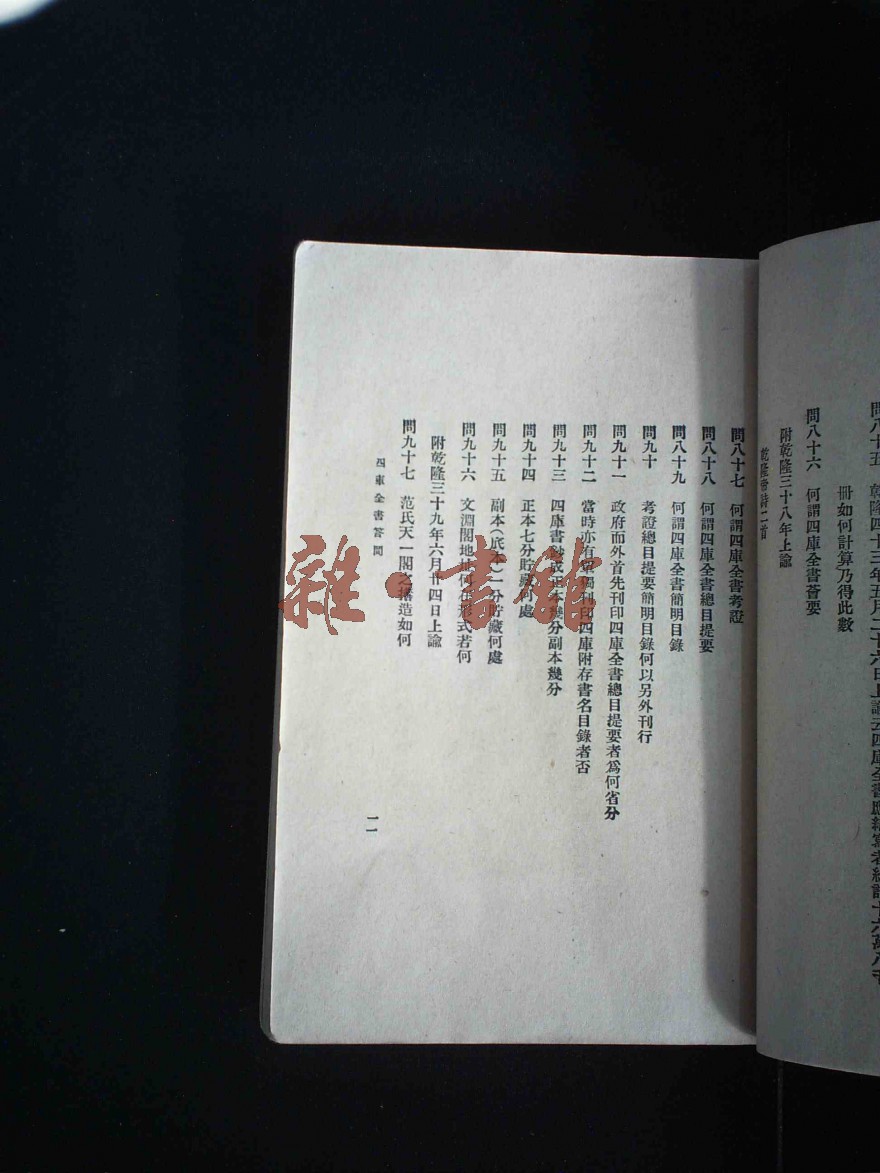 問八十五　乾隆四十三年五月二十六日上諭云四庫全書應繕寫者統計十六萬八千
冊如何計算乃得此數
問八十六　何謂四庫全書薈要
附乾隆三十八年上諭
乾隆帝詩二首
問八十七　何謂四庫全書考證
問八十八　何謂四庫全書總目提要
問八十九　何謂四庫全書簡明目錄
問九十　考證總目提要簡明目錄何以另外刊行
問九十一　政府而外首先刊印四庫全書總目提要者爲何省分
問九十二　當時亦有單獨刊印四庫附存書名目錄者否
問九十三　四庫書鈔成正本幾分副本幾分
問九十四　正本七分貯藏何處
問九十五　副本（底本）一分貯藏何處
問九十六　文淵閣地址何在形式若何
附乾隆三十九年六月廿四日上諭
問九十七　范氏天一閣之構造如何
四庫全書答問
一一
雜·書館